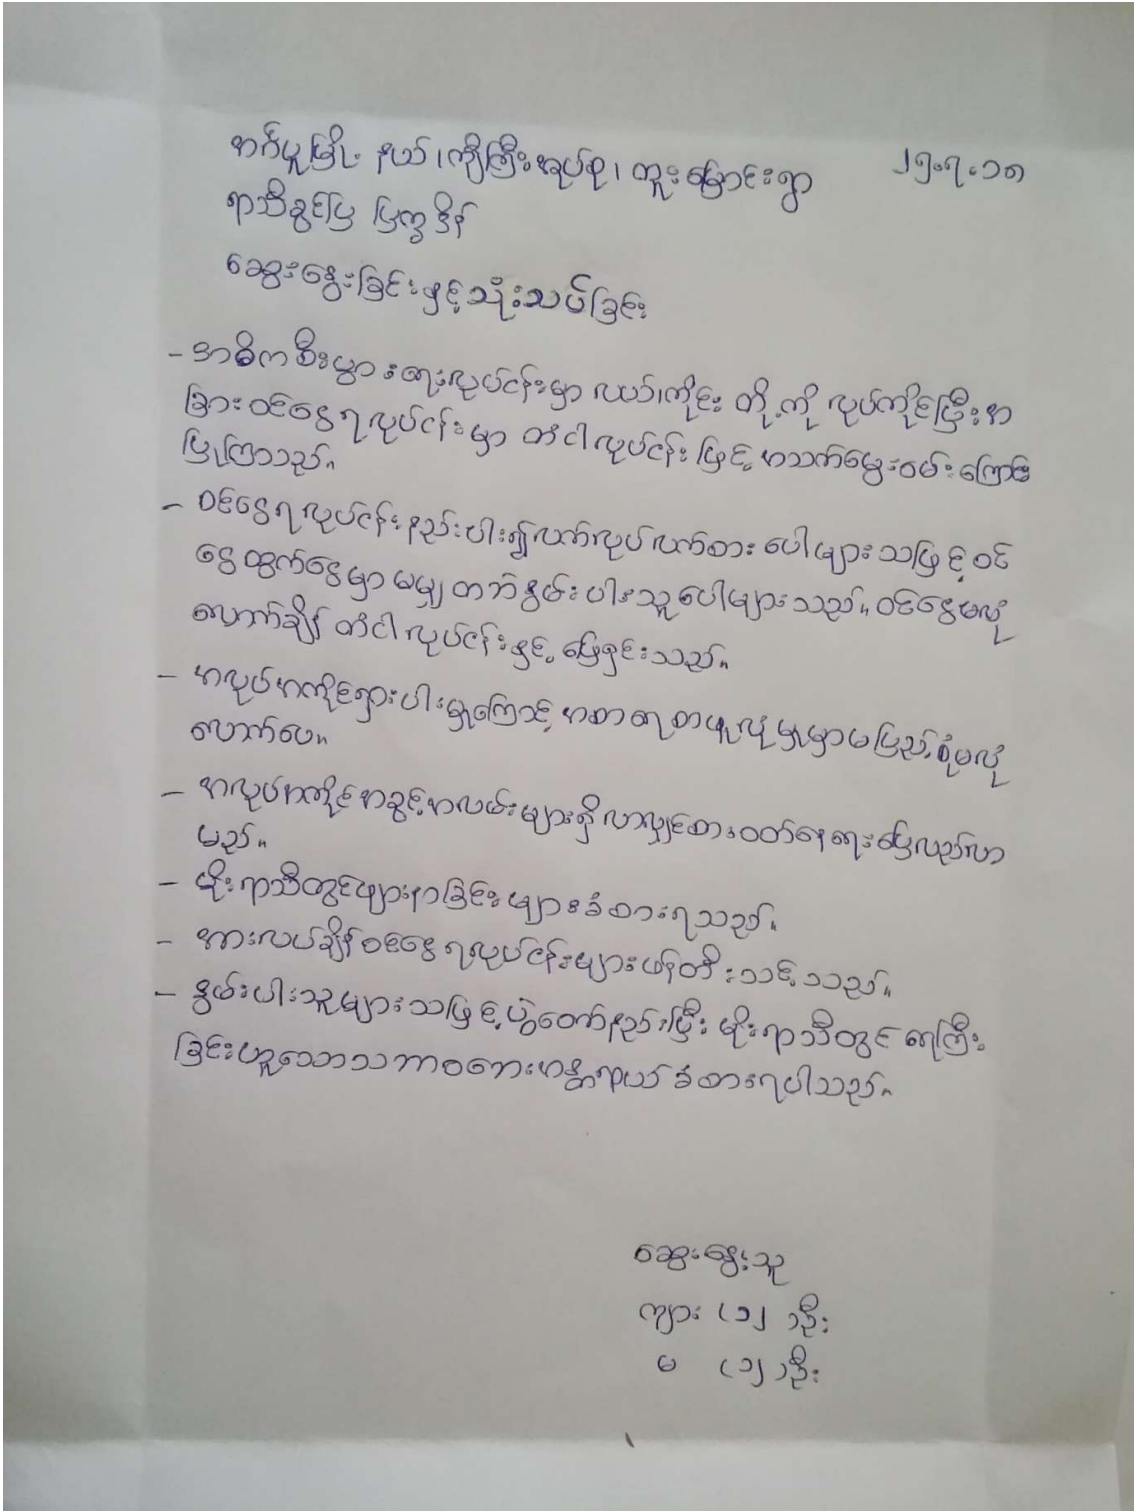 အင်္ဂပူမြို့နယ်၊ ကျီကြီးအုပ်စု၊ ကူးမြောင်းရွာ ၂၅.၇.၁၈
ရာသီခွင်ပြ ပြက္ခဒိန်
ဆွေးနွေးခြင်းနှင့်သုံးသပ်ခြင်း
- အဓိကစီးပွားရေးလုပ်ငန်းမှာ လယ်၊ကိုင်း တို့ကို လုပ်ကိုင်ပြီးအ
ခြားဝင်ငွေရလုပ်ငန်းမှာ တံငါလုပ်ငန်းဖြင့် အသက်မွေးဝမ်းကြောင်း
ပြုကြသည်။
- ဝင်ငွေရလုပ်ငန်းနည်းပါး၍လက်လုပ်လက်စား ပေါများသဖြင့် ဝင်
ငွေထွက်ငွေမှာ မမျှတဘဲနွမ်းပါးသူပေါများသည်။ ဝင်ငွေမလုံ
လောက်ချိန် တံငါလုပ်ငန်းနှင့် ဖြေရှင်းသည်။
- အလုပ်အကိုင်ရှားပါးမှုကြောင့် အစားရေစာဖူလုံမှုမှာမပြည့်စုံမလုံ
လောက်ပေ။
- အလုပ်အကိုင်အခွင့်အလမ်းများရှိလာလျှင်စားဝတ်နေရေးပြေလည်လာ
မည်။
- မိုးရာသီတွင်ဖျားနာခြင်းများခံစားရသည်။
- အားလပ်ချိန်ဝင်ငွေရလုပ်ငန်းများဖန်တီးသင့်သည်။
- နွမ်းပါးသူများသဖြင့်ပွဲတော်နည်းပြီး မိုးရာသီတွင် ရေကြီး
ခြင်းဟူသောသဘာဝဘေးအန္တရာယ် ခံစားရပါသည်။
ဆွေးနွေးသူ
ကျား (၁၂)ဦး
မ (၁၂)ဦး